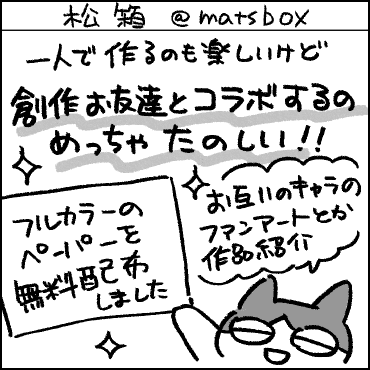 松箱 @matsbox
一人で作るのも楽しいけど
創作お友達とコラボするの
めっちゃたのしい!!
お互いのキャラの
ファンアートとか
作品紹介
フルカラーの
ペーパーを
無料配布
しました